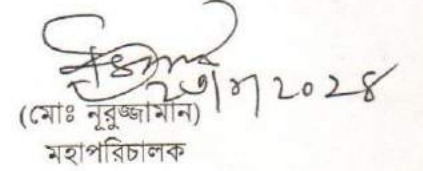 ২০২৪
(মোঃ নূরুজ্জামান)
মহাপরিচালক